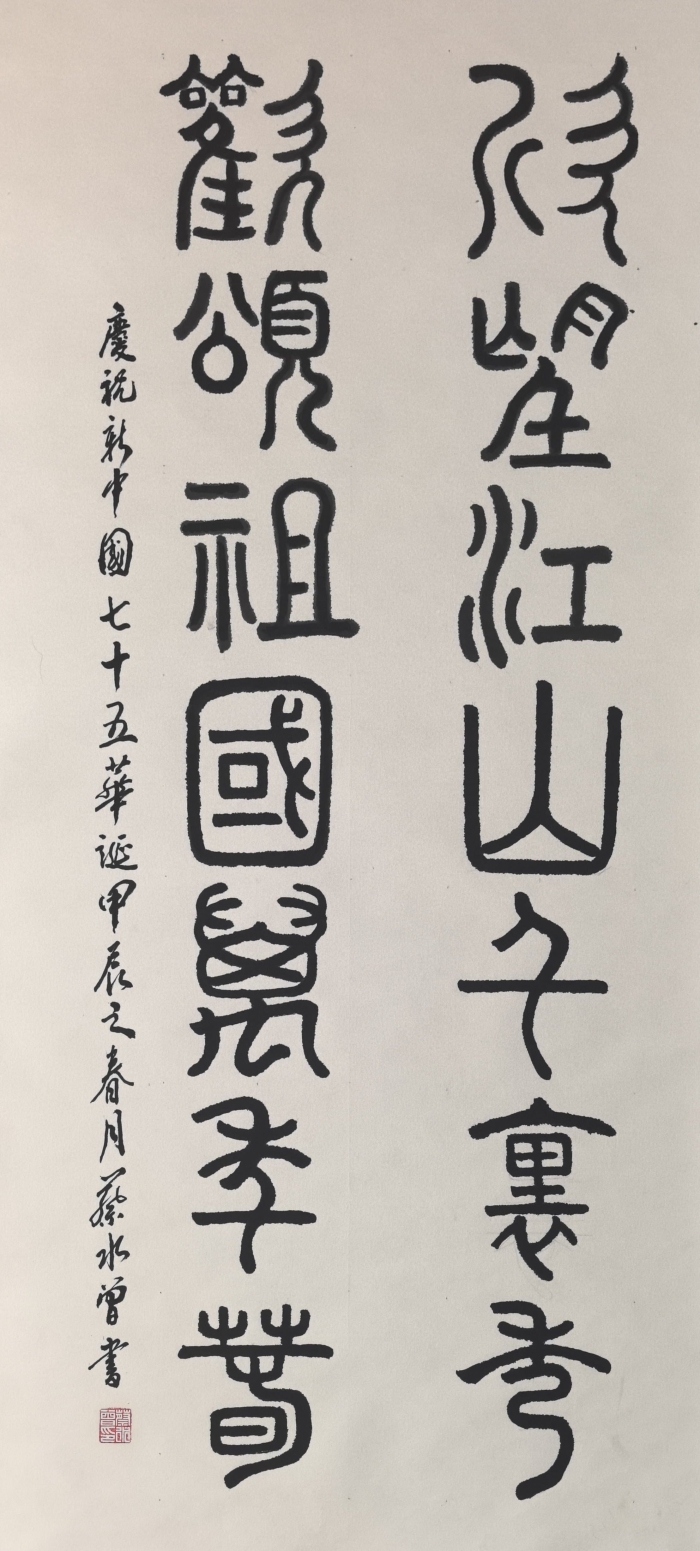 欣望江山千裏秀
歡頌祖國萬年春
慶祝新中國七十五華誕甲辰之春月蔡水曾書